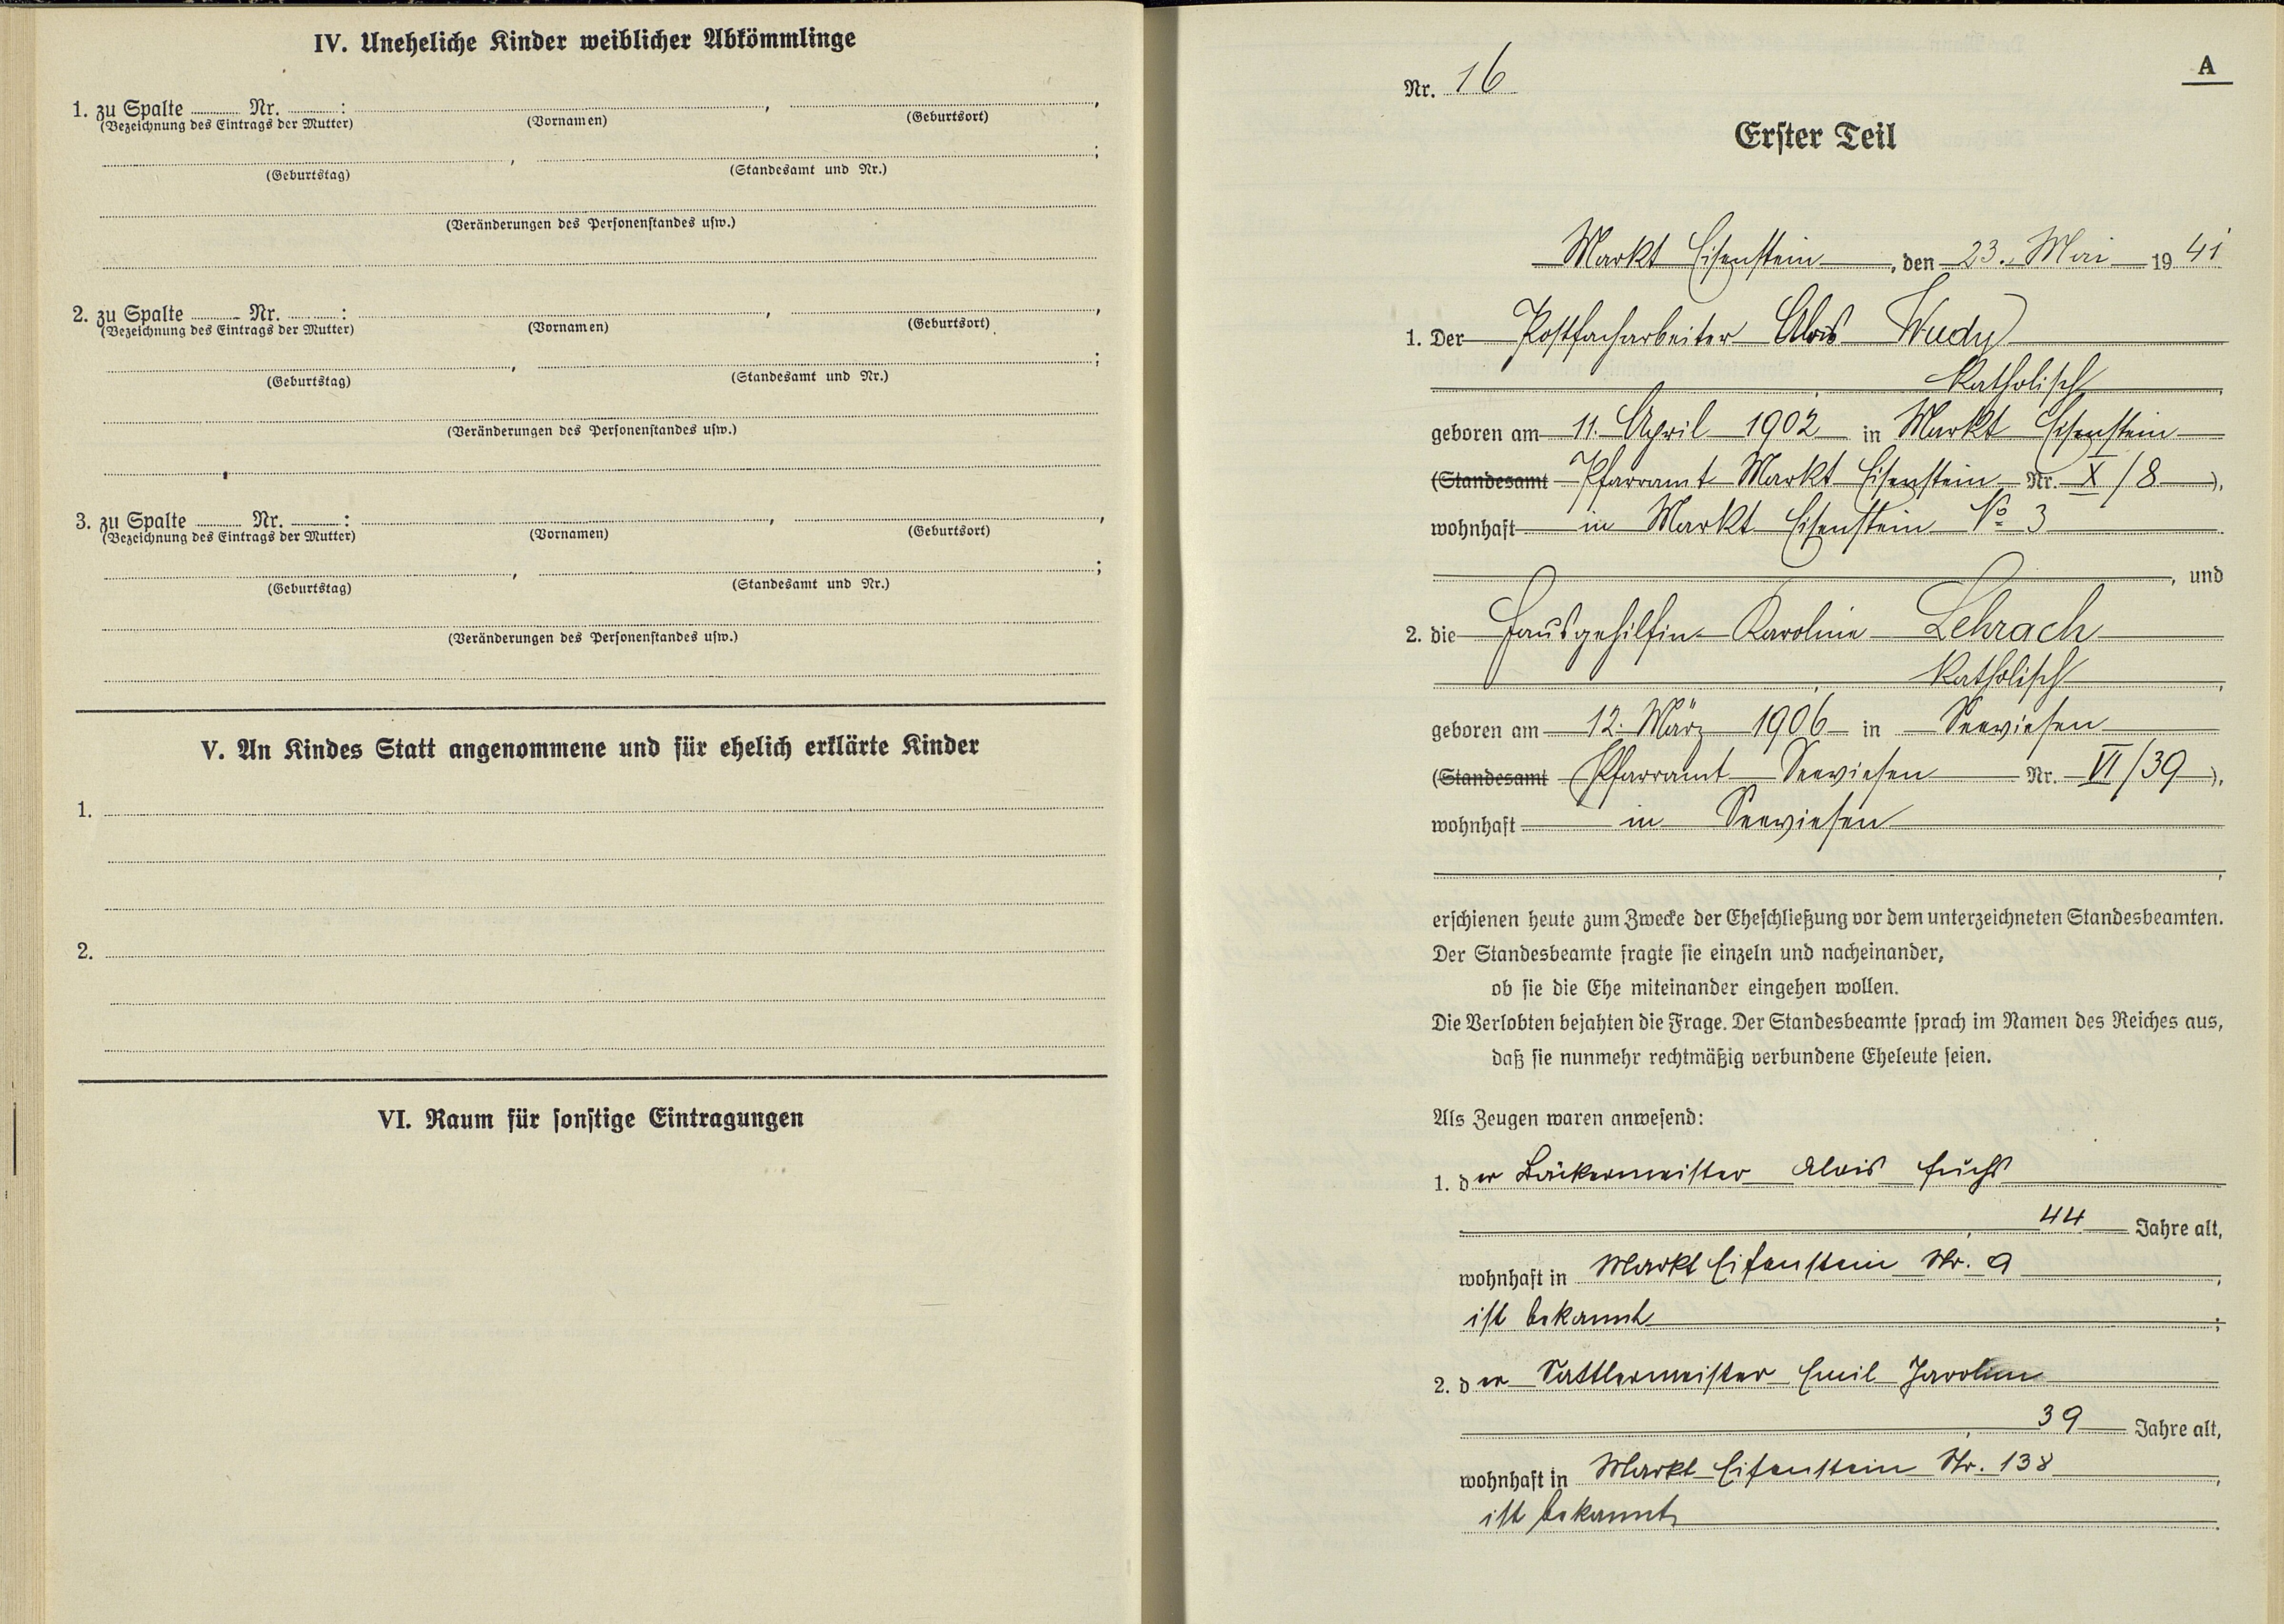 IV. Uneheliche Kinder weiblicher Abkömmlinge
1. zu Spalte ........ Nr. ........ : ........, ........,
(Bezeichnung des Eintrags der Mutter) (Vornamen) (Geburtsort)
........, ........;
(Geburtstag) (Standesamt und Nr.)
(Veränderungen des Personenstandes usw.)
2. zu Spalte ........ Nr. ........ : ........, ........,
(Bezeichnung des Eintrags der Mutter) (Vornamen) (Geburtsort)
........, ........;
(Geburtstag) (Standesamt und Nr.)
(Veränderungen des Personenstandes usw.)
3. zu Spalte ........ Nr. ........ : ........, ........,
(Bezeichnung des Eintrags der Mutter) (Vornamen) (Geburtsort)
........, ........;
(Geburtstag) (Standesamt und Nr.)
(Veränderungen des Personenstandes usw.)
V. An Kindes Statt angenommene und für ehelich erklärte Kinder
1.
2.
VI. Raum für sonstige Eintragungen
A
Nr. 16
Erster Teil
Markt Eisenstein, den 23. Mai 1941
1. Der Postfacharbeiter Alois Wudy
katholisch,
geboren am 11. April 1902 in Markt Eisenstein
(Standesamt Pfarramt Markt Eisenstein Nr. X/8),
wohnhaft in Markt Eisenstein No 3
, und
2. die Hausgehilfin Karoline Lehrach
katholisch,
geboren am 12. März 1906 in Seewiesen
(Standesamt Pfarramt Seewiesen Nr. VI/39),
wohnhaft in Seewiesen
,
erschienen heute zum Zwecke der Eheschließung vor dem unterzeichneten Standesbeamten.
Der Standesbeamte fragte sie einzeln und nacheinander,
ob sie die Ehe miteinander eingehen wollen.
Die Verlobten bejahten die Frage. Der Standesbeamte sprach im Namen des Reiches aus,
daß sie nunmehr rechtmäßig verbundene Eheleute seien.
Als Zeugen waren anwesend:
1. der Bäckermeister Alois Fuchs
, 44 Jahre alt,
wohnhaft in Markt Eisenstein Nr. 9,
ist bekannt;
2. der Sattlermeister Emil Jarolim
, 39 Jahre alt,
wohnhaft in Markt Eisenstein Nr. 138,
ist bekannt.